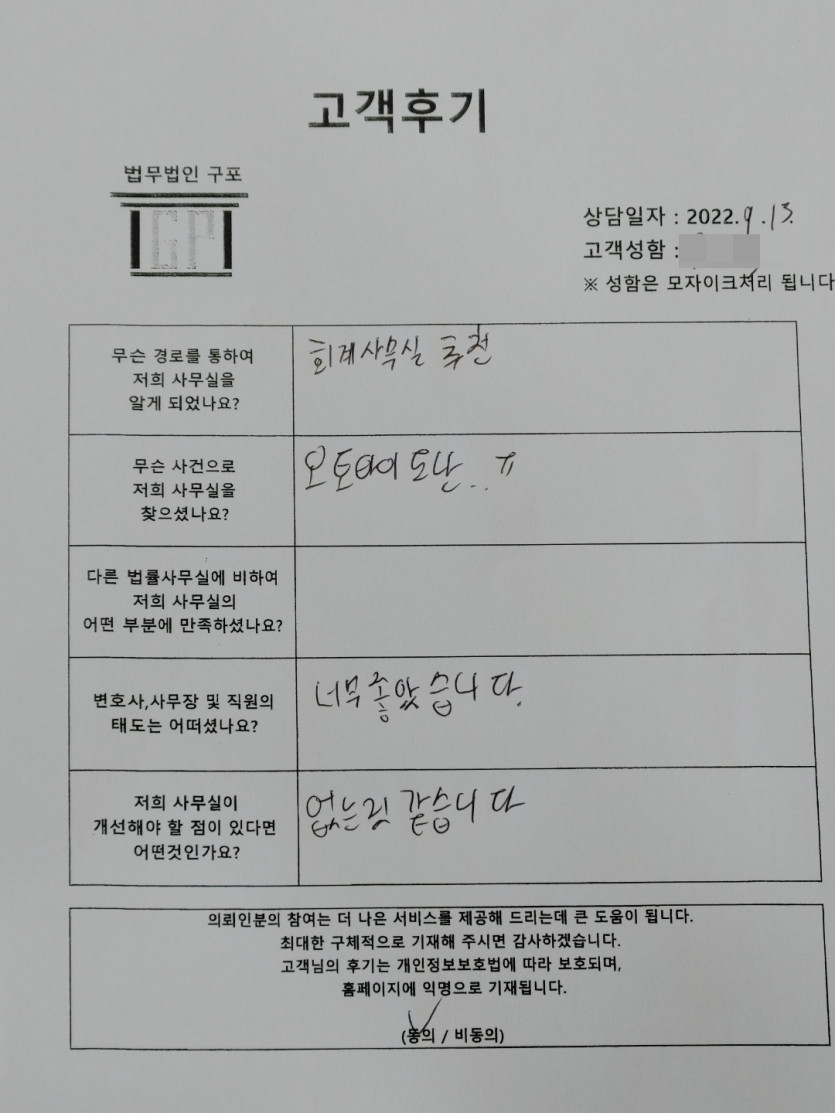 고객후기
법무법인 구포
IGPI
상담일자 : 2022.9.13.
고객성함 :
※ 성함은 모자이크처리 됩니다
무슨 경로를 통하여
저희 사무실을
알게 되었나요?
회계사무실 추천
무슨 사건으로
저희 사무실을
찾으셨나요?
오토바이 도난...ㅠ
다른 법률사무실에 비하여
저희 사무실의
어떤 부분에 만족하셨나요?
변호사,사무장 및 직원의
태도는 어떠셨나요?
너무 좋았습니다.
저희 사무실이
개선해야 할 점이 있다면
어떤것인가요?
없는것 같습니다
의뢰인분의 참여는 더 나은 서비스를 제공해 드리는데 큰 도움이 됩니다.
최대한 구체적으로 기재해 주시면 감사하겠습니다.
고객님의 후기는 개인정보보호법에 따라 보호되며,
홈페이지에 익명으로 기재됩니다.
(동의 / 비동의)